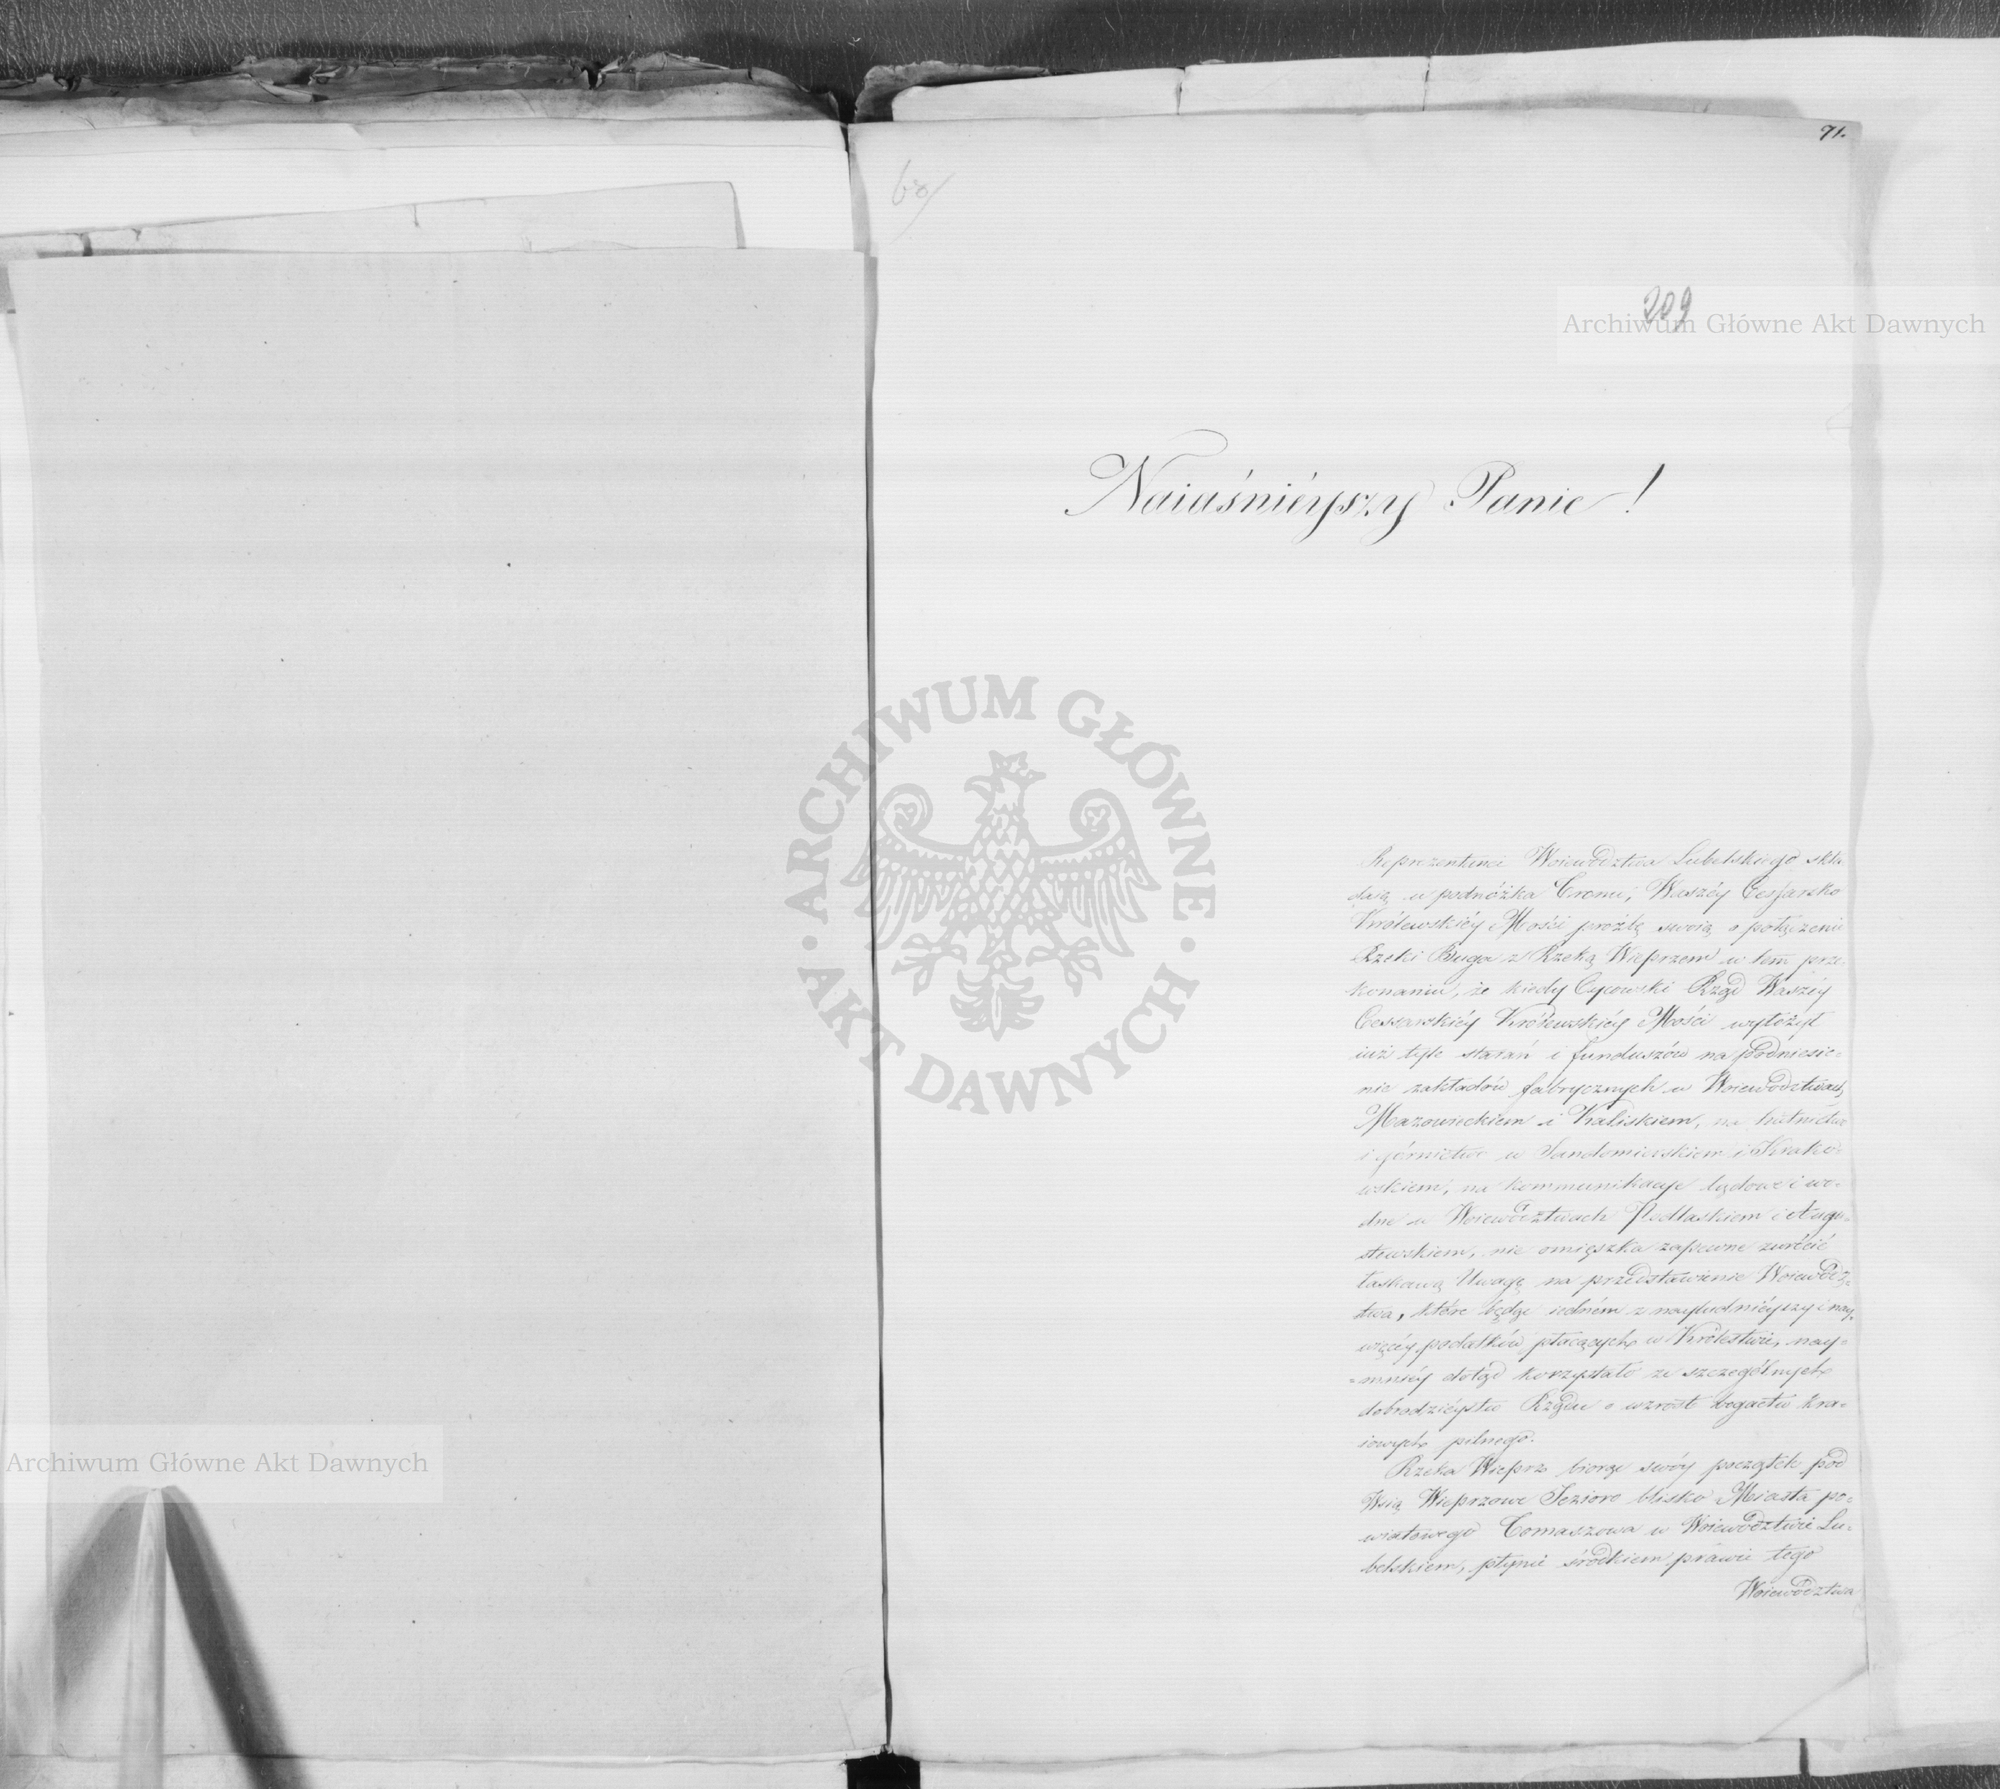 71.
60/
209
Archiwum Główne Akt Dawnych
Naiaśnieyszy Panie!
ARCHIWUM GŁÓWNE · AKT DAWNYCH ·
Reprezentanci Woiewództwa Lubelskiego skła-
daią u podnóżka Tronu, Waszéy Cesarsko
Królewskiéy Mości proźbę swoią o połączenie
Rzeki Buga z Rzeką Wieprzem w tem prze-
konaniu, że kiedy Oycowski Rząd Waszéy
Cesarskiéy Królewskiéy Mości wyłożył
iuż tyle starań i funduszów na podniesie-
nie zakładów fabrycznych w Woiewództwach
Mazowieckiem i Kaliskiem, na hutnictwo
i górnictwo w Sandomierskiem i Krako-
wskiem, na kommunikacye lądowe i wo-
dne w Woiewództwach Podlaskiem i Augu-
stowskiem, nie omięszka zapewne zwrócić
łaskawą Uwagę na przedstawienie Woiewódz-
twa, które będąc iedném z nayludnieyszy i nay-
więcéy podatków płacących w Królestwie, nay-
-mniéy dotąd korzystało ze szczególnych
dobrodzieystw Rządu o wzrost bogactw kra-
iowych pilnego.
Rzeka Wieprz biorąc swóy początek pod
Wsią Wieprzowe Jezioro blisko Miasta po-
wiatowego Tomaszowa w Woiewództwie Lu-
belskiem, płynie środkiem prawie tego
Woiewództwa
Archiwum Główne Akt Dawnych